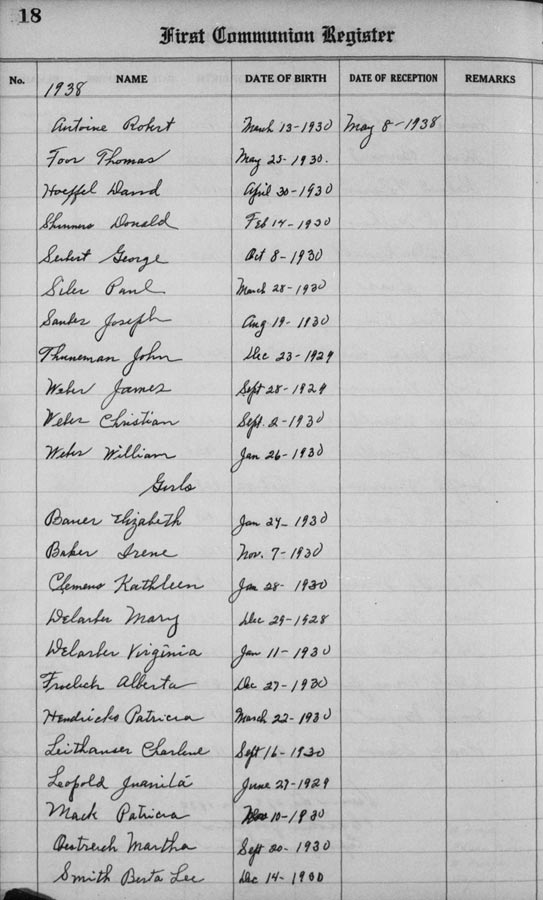 18
First Communion Register
No. NAME DATE OF BIRTH DATE OF RECEPTION REMARKS
1938
Antoine Robert March 13-1930 May 8-1938
Foor Thomas May 25-1930.
Hoeffel David April 30-1930
Shinners Donald Feb 14-1930
Seibert George Oct 8-1930
Siler Paul March 28-1930
Santer Joseph Aug 19-1930
Thuneman John Dec 23-1929
Weber James Sept 28-1929
Weber Christian Sept. 2-1930
Weber William Jan 26-1930
Girls
Bauer Elizabeth Jan 24-1930
Baker Irene Nov. 7-1930
Clemens Kathleen Jan 28-1930
Delarber Mary Dec 29-1928
Delarber Virginia Jan 11-1930
Froelich Alberta Dec 27-1930
Hendricks Patricia March 22-1930
Leithauser Charlene Sept 16-1930
Leopold Juanita June 27-1929
Mack Patricia 10-1930
Oestreich Martha Sept 20-1930
Smith Berta Lee Dec 14-1930